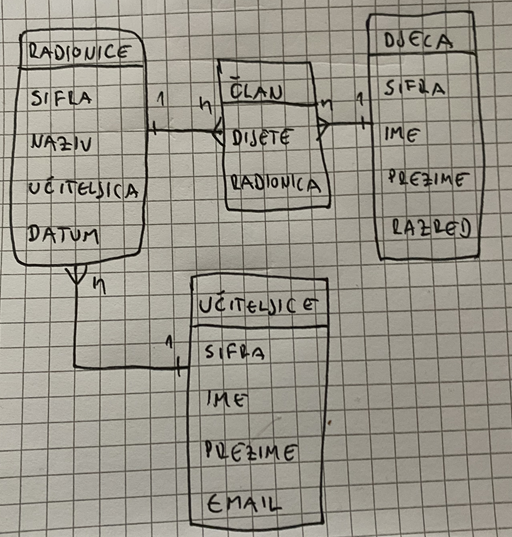 RADIONICE
SIFRA
NAZIV
UČITELJICA
DATUM
1
n
ČLAN
DIJETE
RADIONICA
n
1
DJECA
SIFRA
IME
PREZIME
RAZRED
n
1
UČITELJICE
SIFRA
IME
PREZIME
EMAIL